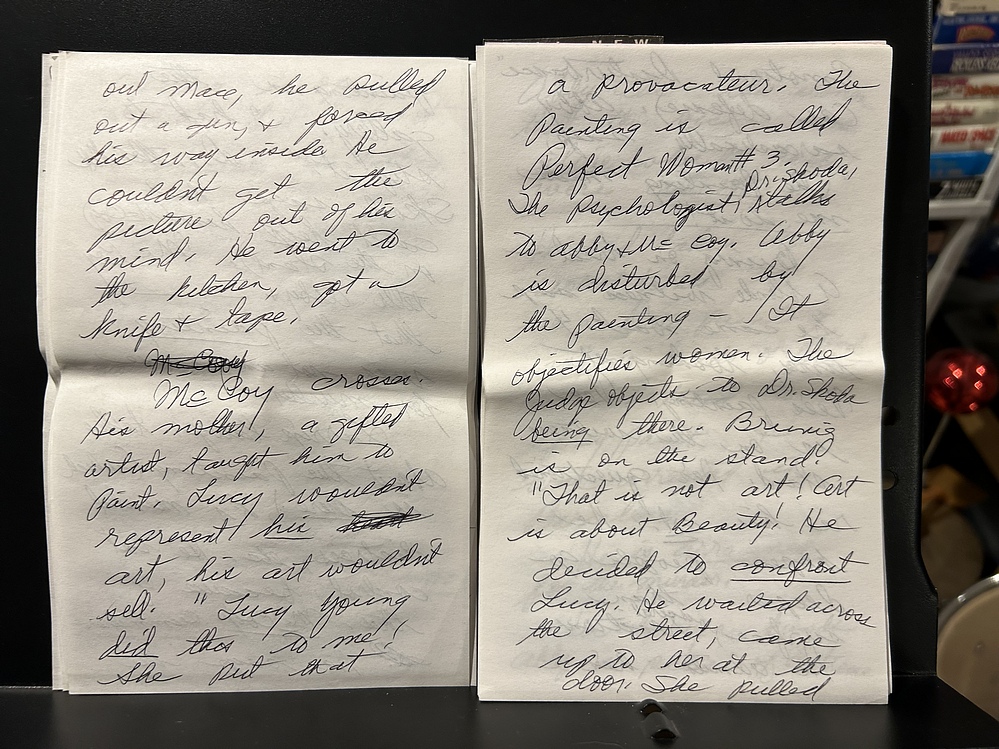 out Mace, he pulled
out a gun, & forced
his way inside. He
couldn't get the
picture out of his
mind. He went to
the kitchen, got a
knife & tape.
McCoy
McCoy crosses.
His mother, a gifted
artist, taught him to
Paint. Lucy wouldn't
represent his
art, his art wouldn't
sell. "Lucy Young
did this to me!
She put that
a provacateur. The
Painting is called
Perfect Woman # 3.
Dr. Shoda,
The Psychologist, talks
to abby & Mc Coy. Abby
is disturbed by
the painting – It
objectifies women. The
Judge objects to Dr. Shoda
being there. Brunig
is on the stand.
"That is not art! Art
is about Beauty! He
decided to confront
Lucy. He waited across
the street, came
up to her at the
door. She pulled